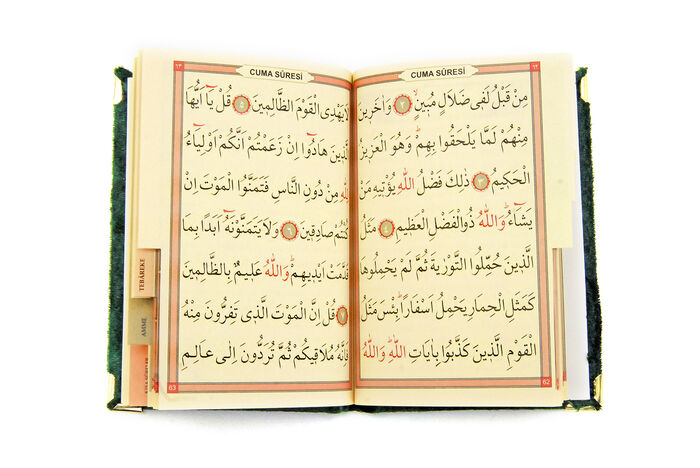 ١٢
CUMA SÛRESİ
مِنْ قَبْلُ لَفٖى ضَلَالٍ مُبٖينٍۙ ٢ وَاٰخَرٖينَ
مِنْهُمْ لَمَّا يَلْحَقُوا بِهِمْؕ وَهُوَ الْعَزٖيزُ
الْحَكٖيمُ ٣ ذٰلِكَ فَضْلُ اللّٰهِ يُؤْتٖيهِ مَنْ
يَشَٓاءُؕ وَاللّٰهُ ذُو الْفَضْلِ الْعَظٖيمِ ٤ مَثَلُ
الَّذٖينَ حُمِّلُوا التَّوْرٰيةَ ثُمَّ لَمْ يَحْمِلُوهَا
كَمَثَلِ الْحِمَارِ يَحْمِلُ اَسْفَارًاؕ بِئْسَ مَثَلُ
الْقَوْمِ الَّذٖينَ كَذَّبُوا بِاٰيَاتِ اللّٰهِؕ وَاللّٰهُ
62
١٣
CUMA SÛRESİ
لَا يَهْدِى الْقَوْمَ الظَّالِمٖينَ ٥ قُلْ يَٓا اَيُّهَا
الَّذٖينَ هَادُٓوا اِنْ زَعَمْتُمْ اَنَّكُمْ اَوْلِيَٓاءُ
لِلّٰهِ مِنْ دُونِ النَّاسِ فَتَمَنَّوُا الْمَوْتَ اِنْ
كُنْتُمْ صَادِقٖينَ ٦ وَلَا يَتَمَنَّوْنَهُٓ اَبَدًا بِمَا
قَدَّمَتْ اَيْدٖيهِمْؕ وَاللّٰهُ عَلٖيمٌ بِالظَّالِمٖينَ
٧ قُلْ اِنَّ الْمَوْتَ الَّذٖى تَفِرُّونَ مِنْهُ
فَاِنَّهُ مُلَاقٖيكُمْ ثُمَّ تُرَدُّونَ اِلٰى عَالِمِ
63
TEBÂREKE
AMME